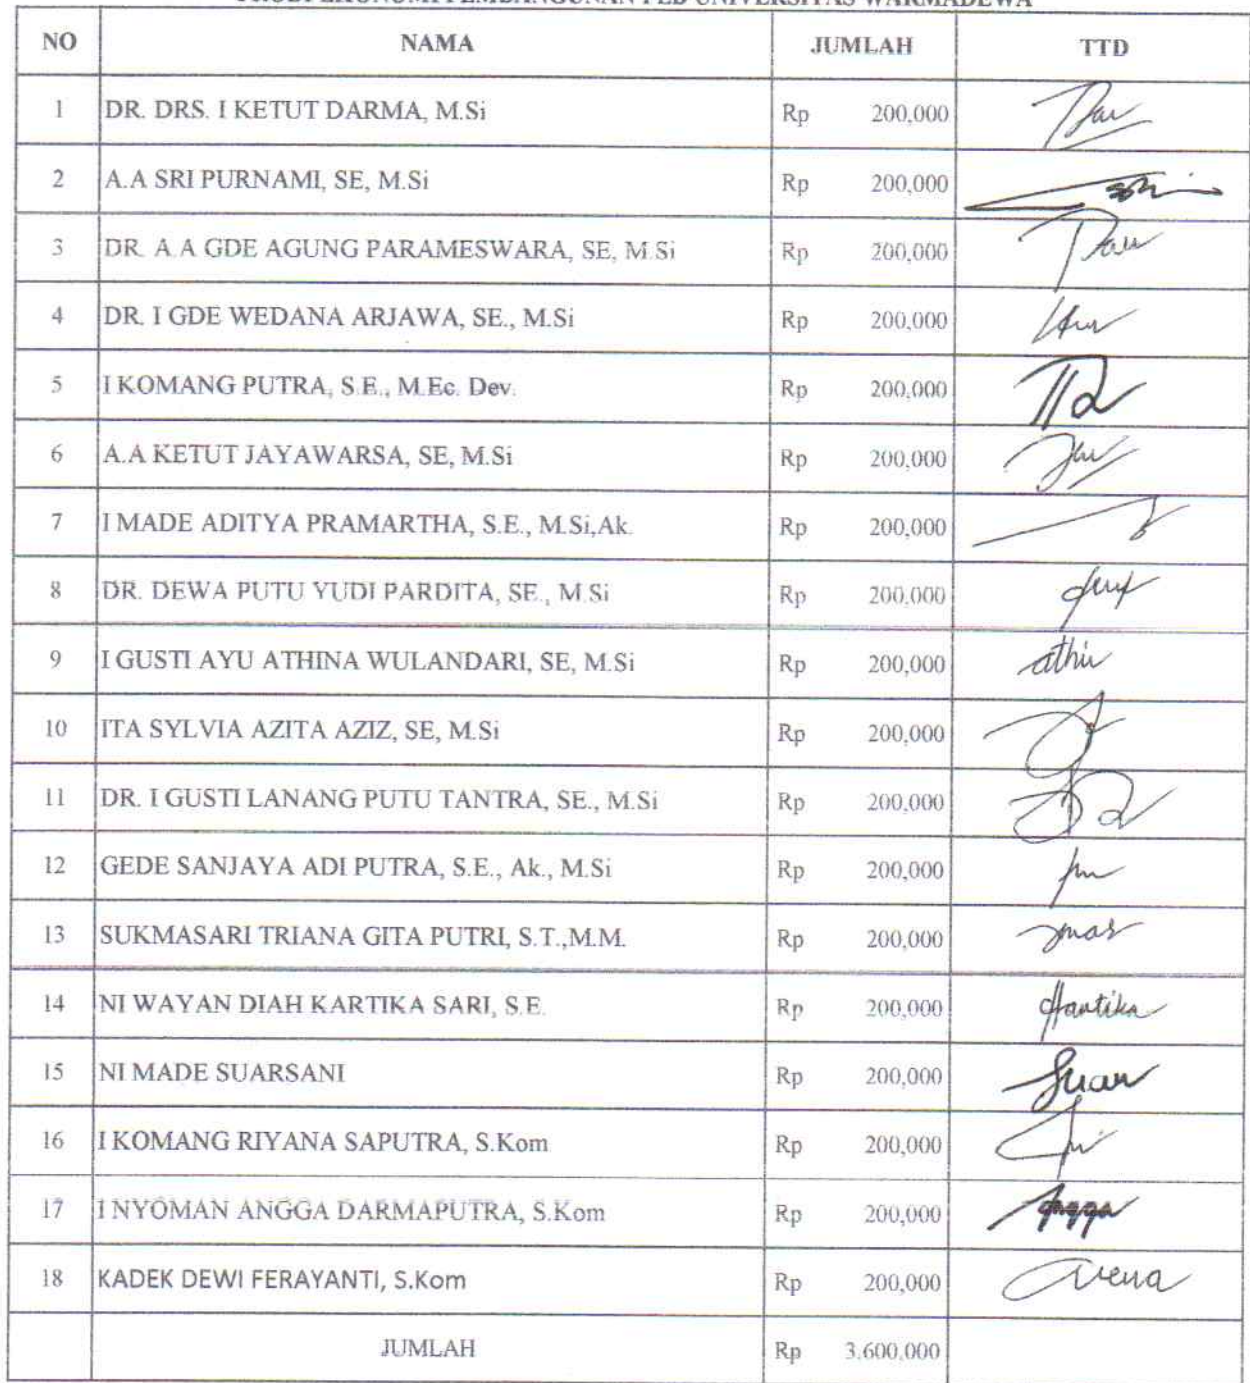 PRODI EKONOMI PEMBANGUNAN FEB UNIVERSITAS WARMADEWA
NO NAMA JUMLAH TTD
1 DR. DRS. I KETUT DARMA, M.Si Rp 200,000
2 A.A SRI PURNAMI, SE, M.Si Rp 200,000
3 DR. A.A GDE AGUNG PARAMESWARA, SE, M.Si Rp 200,000
4 DR. I GDE WEDANA ARJAWA, SE., M.Si Rp 200,000
5 I KOMANG PUTRA, S.E., M.Ec. Dev. Rp 200,000
6 A.A KETUT JAYAWARSA, SE, M.Si Rp 200,000
7 I MADE ADITYA PRAMARTHA, S.E., M.Si,Ak. Rp 200,000
8 DR. DEWA PUTU YUDI PARDITA, SE., M.Si Rp 200,000
9 I GUSTI AYU ATHINA WULANDARI, SE, M.Si Rp 200,000 athin
10 ITA SYLVIA AZITA AZIZ, SE, M.Si Rp 200,000
11 DR. I GUSTI LANANG PUTU TANTRA, SE., M.Si Rp 200,000
12 GEDE SANJAYA ADI PUTRA, S.E., Ak., M.Si Rp 200,000
13 SUKMASARI TRIANA GITA PUTRI, S.T.,M.M. Rp 200,000
14 NI WAYAN DIAH KARTIKA SARI, S.E. Rp 200,000
15 NI MADE SUARSANI Rp 200,000
16 I KOMANG RIYANA SAPUTRA, S.Kom Rp 200,000
17 I NYOMAN ANGGA DARMAPUTRA, S.Kom Rp 200,000 Angga
18 KADEK DEWI FERAYANTI, S.Kom Rp 200,000
JUMLAH Rp 3,600,000